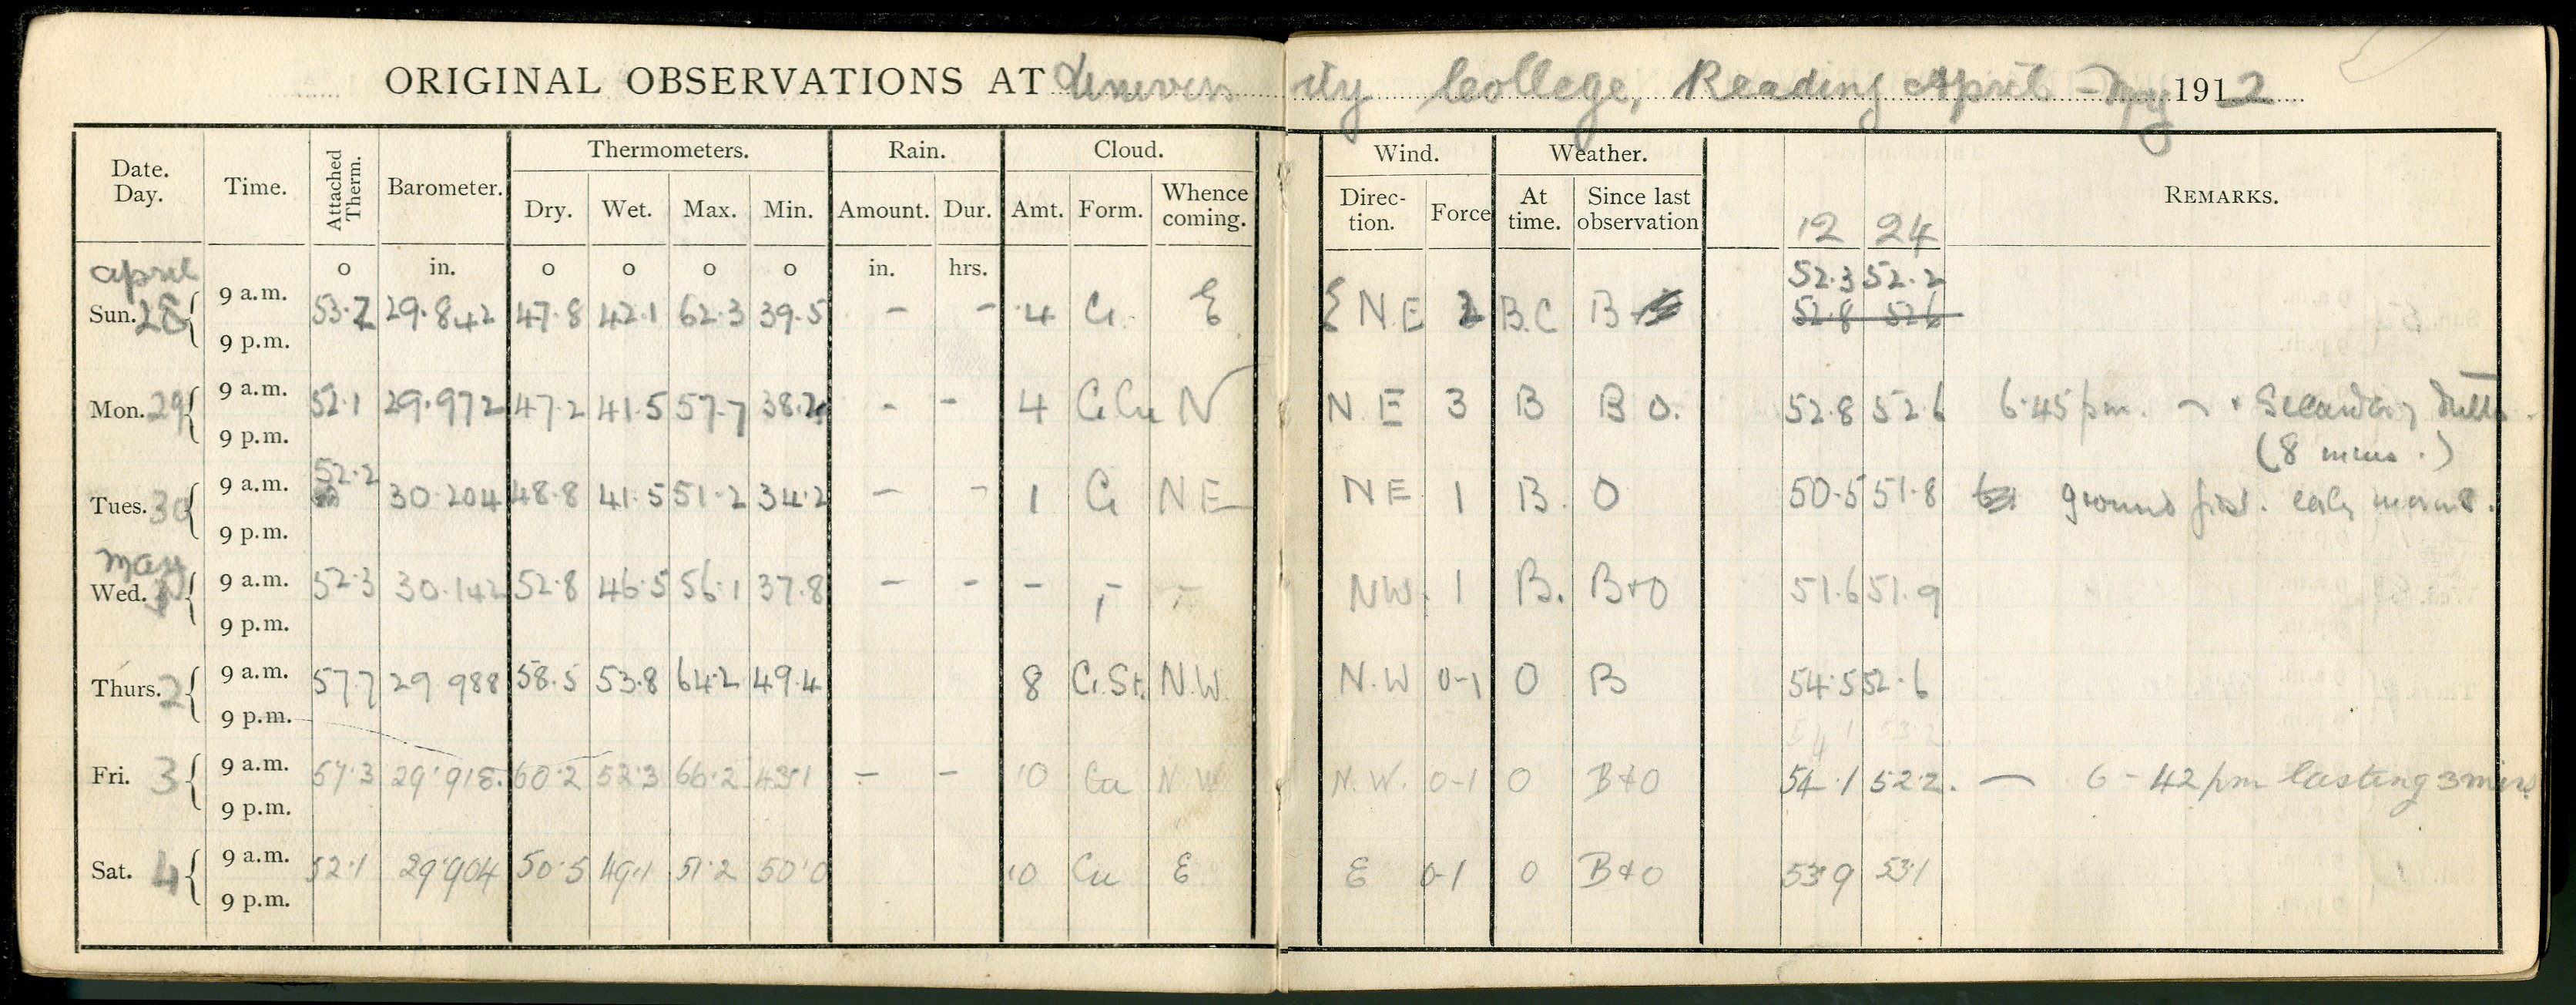 ORIGINAL OBSERVATIONS AT University College, Reading April - May 1912
Date. Day. Time. Attached Therm. Barometer. Thermometers. Rain. Cloud. Wind. Weather. REMARKS.
Dry. Wet. Max. Min. Amount. Dur. Amt. Form. Whence coming. Direc- tion. Force At time. Since last observation 12 24
April o in. o o o o in. hrs. 52.3 52.2
Sun. 28 { 9 a.m. 53.2 29.842 47.8 42.1 62.3 39.5 - - 4 Ci. E { NE 2 B.C B 52.8 52.6
9 p.m.
Mon. 29 { 9 a.m. 52.1 29.972 47.2 41.5 57.7 38.2 - - 4 Ci Cu N N E 3 B B O. 52.8 52.6 6.45 pm. Secondary
9 p.m. (8 mins.)
Tues. 30 { 9 a.m. 52.2 30.204 48.8 41.5 51.2 34.2 - - 1 Ci NE NE 1 B. O 50.5 51.8 ground frost. early
9 p.m.
May
Wed. 1 { 9 a.m. 52.3 30.142 52.8 46.5 56.1 37.8 - - - - - NW. 1 B. B+O 51.6 51.9
9 p.m.
Thurs. 2 { 9 a.m. 57.7 29.988 58.5 53.8 64.2 49.4 8 Ci.St. N.W. N.W 0-1 O B 54.5 52.6
9 p.m. 54.1 53.2
Fri. 3 { 9 a.m. 57.3 29.918. 60.2 52.3 66.2 43.1 - - 10 Cu N.W N.W. 0-1 O B&O 54.1 52.2. 6-42 pm lasting 3 mins
9 p.m.
Sat. 4 { 9 a.m. 52.1 29.904 50.5 49.1 51.2 50.0 10 Cu E E 0-1 O B&O 53.9 53.1
9 p.m.